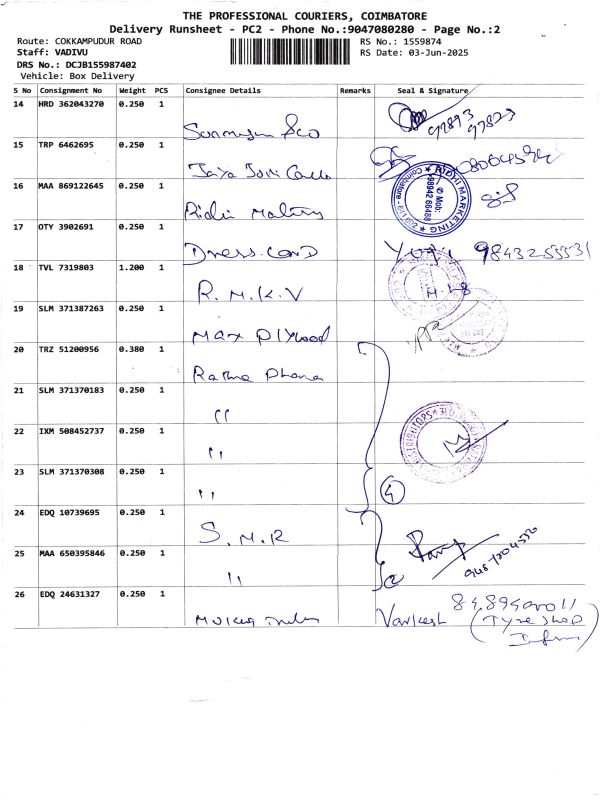 THE PROFESSIONAL COURIERS, COIMBATORE
Delivery Runsheet - PC2 - Phone No.:9047080280 - Page No.:2
Route: COKKAMPUDUR ROAD
RS No.: 1559874
Staff: VADIVU
RS Date: 03-Jun-2025
DRS No.: DCJB155987402
Vehicle: Box Delivery
S No Consignment No Weight PCS Consignee Details Remarks Seal & Signature
14 HRD 362043270 0.250 1
15 TRP 6462695 0.250 1
16 MAA 869122645 0.250 1 Ridhi
RIDHI MARKETING
Mob: 98942 66488
Coimbatore - 641 002
17 OTY 3902691 0.250 1 Dress
18 TVL 7319803 1.200 1 R.M.K.V
19 SLM 371387263 0.250 1 Max Plywood
20 TRZ 51200956 0.380 1 Phone
21 SLM 371370183 0.250 1 "
22 IXM 508452737 0.250 1 "
23 SLM 371370308 0.250 1 " 4
24 EDQ 10739695 0.250 1 S.M.R
25 MAA 650395846 0.250 1 " 2
26 EDQ 24631327 0.250 1 Varkesh
(Tyre Shop